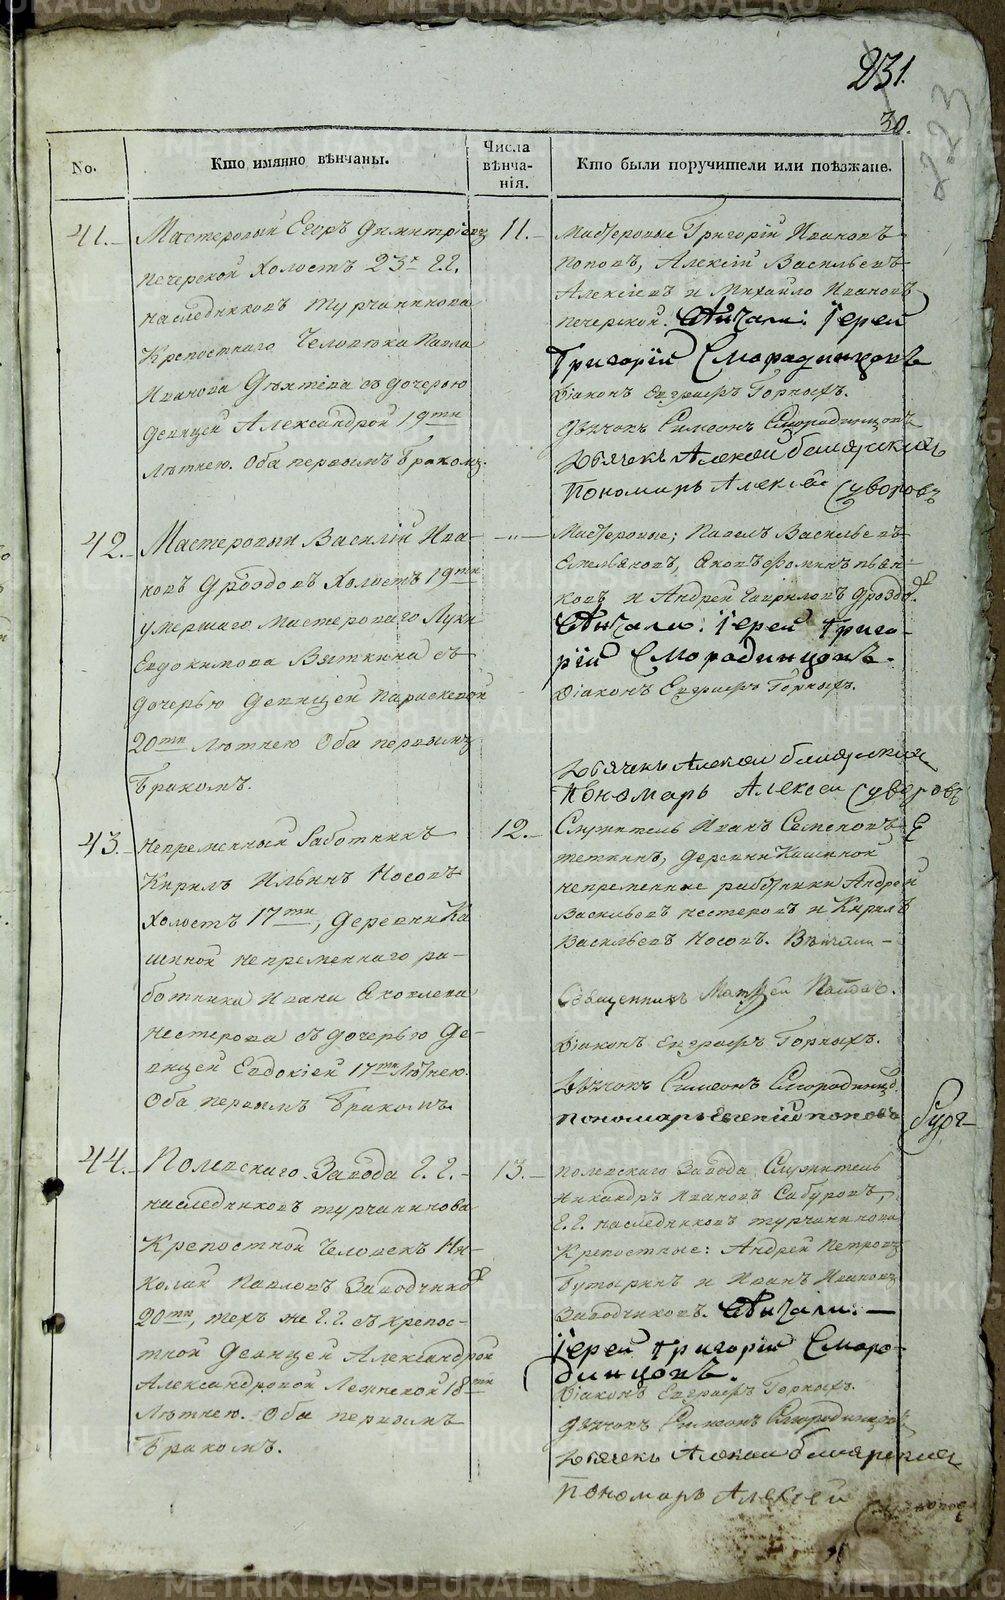 231.
30.
223
No.
Кто имянно вѣнчаны.
Числа вѣнча-
нія.
Кто были поручители или поѣзжане.
41.
Мастеровый Егоръ Димитріевъ
Печерской холостъ 23х Г.Г.
наследниковъ Турчанинова
Крепостнаго Человѣка Павла
Иванова съ дочерью
девицей Александрой 19ти
Лѣтнею. Оба первымъ бракомъ.
11.
Мастеровые Григорій Ивановъ
Поповъ, Алексій Васильевъ
Алексіевъ и Михайло Ивановъ
Печерской. Вѣнчали: Іерей
Григорій Смородинцовъ
Діаконъ Евграфъ Горныхъ.
Дьячокъ Симеонъ Смородинцовъ
Дьячекъ Алексѣй
Пономарь Алексѣй Суворовъ
42.
Мастеровый Василій Ива-
новъ Дроздовъ холостъ 19ти
умершаго мастероваго Луки
Евдокимова Вяткина съ
дочерью девицей Параскевой
20ти Лѣтнею Оба первымъ
бракомъ.
-"-
Мастеровые; Павелъ Васильевъ
Емельяновъ, Яковъ Фоминъ Пьян-
ковъ и Андрей Гавриловъ Дроздовъ.
Вѣнчали: Іерей Григо-
рій Смородинцовъ.
Діаконъ Евграфъ Горныхъ.
Дьячекъ Алексѣй
Пономарь Алексѣй Суворовъ
43.
Непременный Работникъ
Кирилъ Ильинъ Носовъ
холостъ 17ти, деревни Ка
шиной непременнаго ра-
ботника Ивана Яковлева
Нестерова съ дочерью де-
вицей Евдокіей 17ти Лѣтнею.
Оба первымъ бракомъ.
12.
Служитель Иванъ Семеновъ
деревни Кашиной
непременные работники Андрей
Васильевъ Нестеровъ и Кирилъ
Васильевъ Носовъ. Вѣнчали -
Священникъ Матѳей
Діаконъ Евграфъ Горныхъ.
Дьячокъ Симеонъ Смородинцо.
Пономарь Евгеній Поповъ
44.
Полевскаго Завода Г.Г.
наследниковъ Турчанинова
Крепостной Человекъ Ни-
колай Павловъ Заводчиковъ
20ти, техъ же Г.Г. съ крепос-
тной девицей Александрой
Александровой 18ти
Лѣтнею. Оба первымъ
бракомъ.
13.
Полевскаго Завода Служитель
Никандръ Ивановъ Сабуровъ,
Г.Г. наследниковъ Турчанинова
Крепостные: Андрей Петровъ
Бутыринъ и Иванъ Ивановъ
Заводчиковъ. Вѣнчали:
Іерей Григорій Сморо-
динцовъ.
Діаконъ Евграфъ Горныхъ.
Дьячокъ Симеонъ Смородинцовъ
Дьячекъ Алексѣй
Пономарь Алексѣй
METRIKI.GASU-URAL.RU